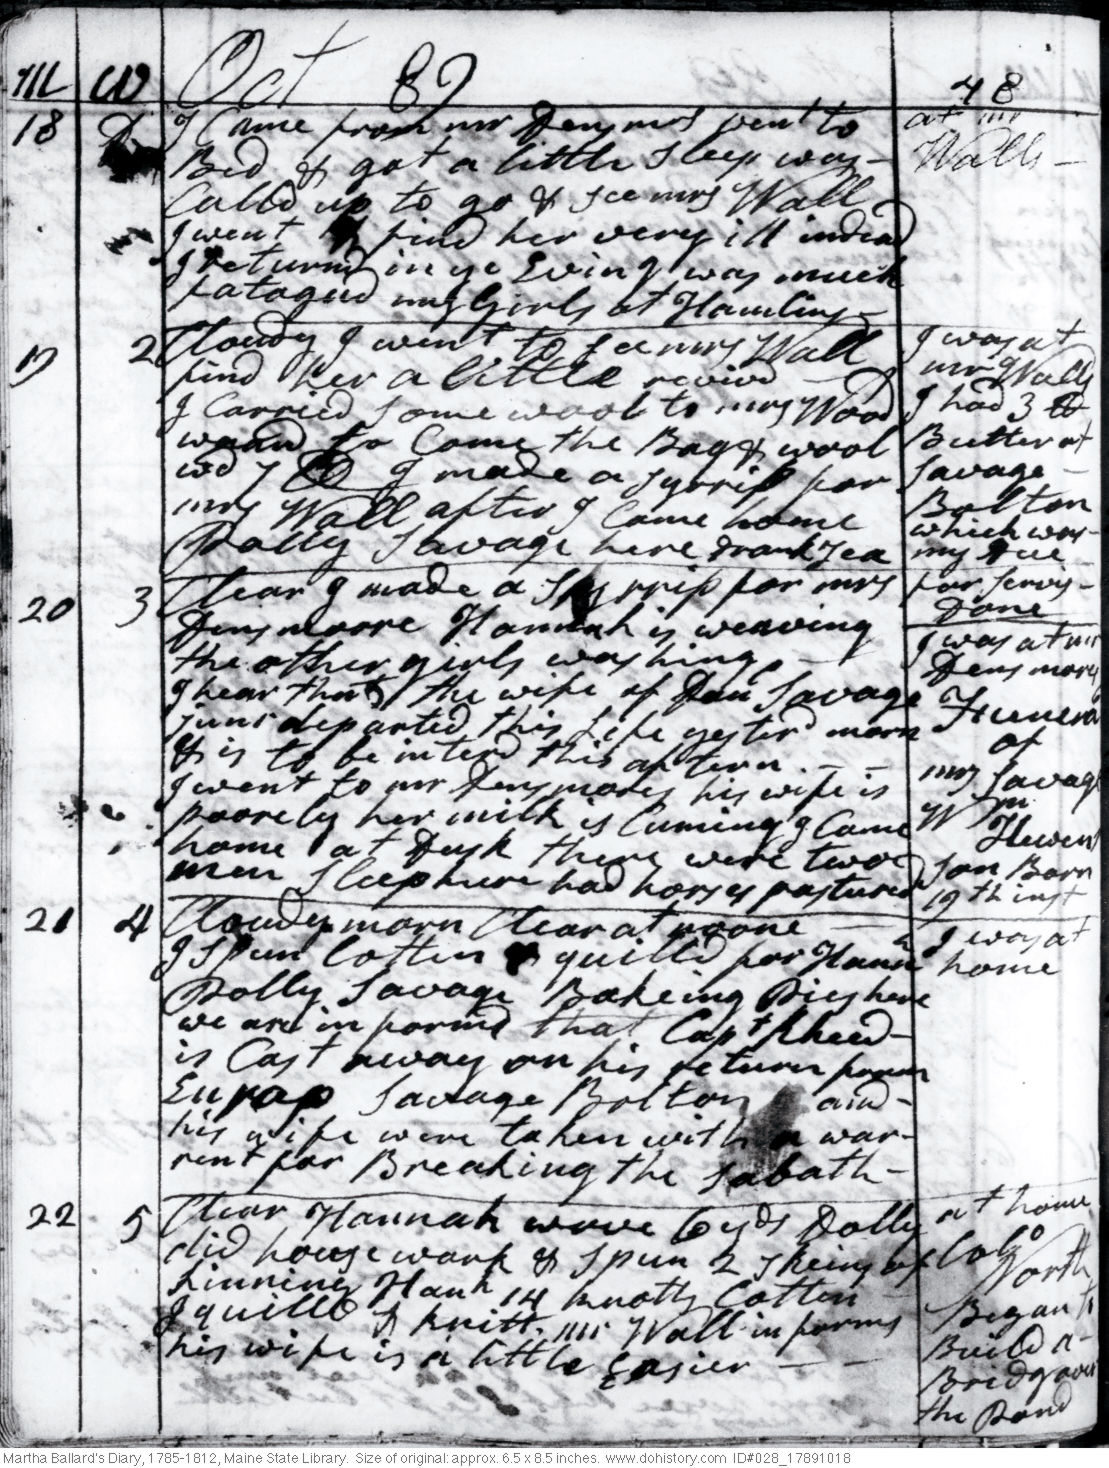 M W Oct 89 48
18 D I Came from mr Densmors went to
Bed & got a little sleep was
Calld up to go & see mrs Wall
I went find her very ill indead
I returnd in ye Eving was much
fatagud my Girls at Hamlins
at mr
Walls
19 2 Cloudy I went to see mrs Wall
find her a little revivd
I Carried some wool to mrs Wood
to Come the Bag & wool
wd 7 lb I made a syrrip for
mrs Wall after I Came home
Polly Savage here drank Tea
I was at
mr Walls
I had 3 lb
Butter of
Savage
Bolton
which was
my Due
for servis
Done
20 3 Clear I made a Syrrip for mrs
Densmoore Hannah is weaving
the other girls washing
I hear that the wife of Dan Savage
junr departed this Life yester morn
& is to be interd this aftern
I went to mr Densmores his wife is
poorely her milk is Cuming I Came
home at Dusk there were two
men sleep here had horses pastured
I was at mr
Densmors
Funeral
of
mrs Savage
Wm
Hewens
son Born
19th inst
21 4 Cloudy morn Clear at noone
I spun Cotten & quilld for Hanh
Dolly Savage Bakeing Pies here
we are informd that Capt Rheed
is Cast away on his return from
Eurap Savage Bolton and
his wife were taken with a war-
rent for Breaking the Sabath
I was at
home
22 5 Clear Hannah wove 6 yds Dolly
did house wark & spun 2 skeins of
Linnine Hanh 14 knotts Cotten
I quilld & knitt. mr Wall informs
his wife is a little Easier
at home
Colo
North
Began to
Build a
Bredg over
the Pond
Martha Ballard's Diary, 1785-1812, Maine State Library. Size of original: approx. 6.5 x 8.5 inches. www.dohistory.com ID#028_17891018